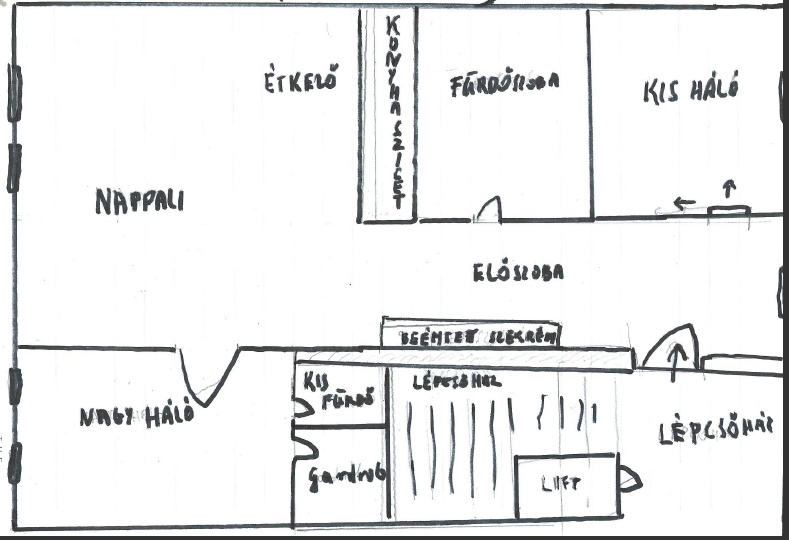 ÉTKELŐ
KONYHASZIGET
FÜRDŐSZOBA
KIS HÁLÓ
NAPPALI
ELŐSZOBA
BEÉPÍTETT SZEKRÉNY
KIS
FÜRDŐ
LÉPCSŐHÁZ
NAGY HÁLÓ
LÉPCSŐHÁZ
Gardrob
LIFT